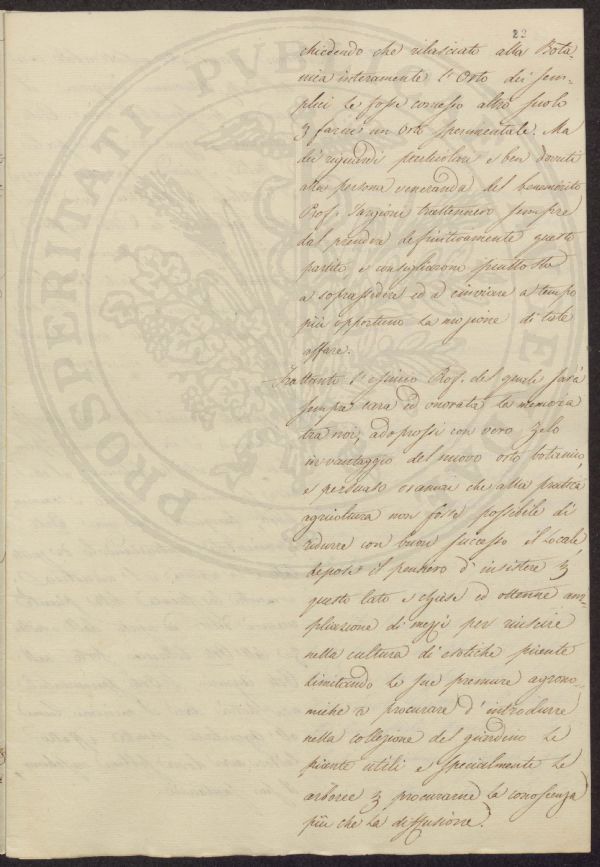 22
chiedendo che rilasciato alla Bota-
nica interamente l'Orto dei Sem-
plici le fosse concesso altro suolo
p farne un orto sperimentale. Ma
dei riguardi particolari e ben dovuti
alla persona veneranda del benemerito
Prof. Targioni trattennero sempre
dal prendere definitivamente questo
partito e consigliarono piuttosto
a soprassedere ed a rinviare a tempo
più opportuno la mozione di tale
affare.
Frattanto l'esimio Prof. del quale sarà
sempre cara ed onorata la memoria
tra noi, adoprossi con vero zelo
in vantaggio del nuovo orto botanico,
e persuaso oramai che alla pratica
agricoltura non fosse possibile di
ridurre con buon successo il locale,
depose il pensiero d'insistere p
questo lato e chiese ed ottenne am-
pliazione di mezzi per riuscire
nella cultura di esotiche piante
limitando le sue premure agrono-
miche a procurare d'introdurre
nella collezione del giardino le
piante utili e specialmente le
arboree p procurarne la conoscenza
più che la diffusione.
PROSPERITATI PVBLICAE